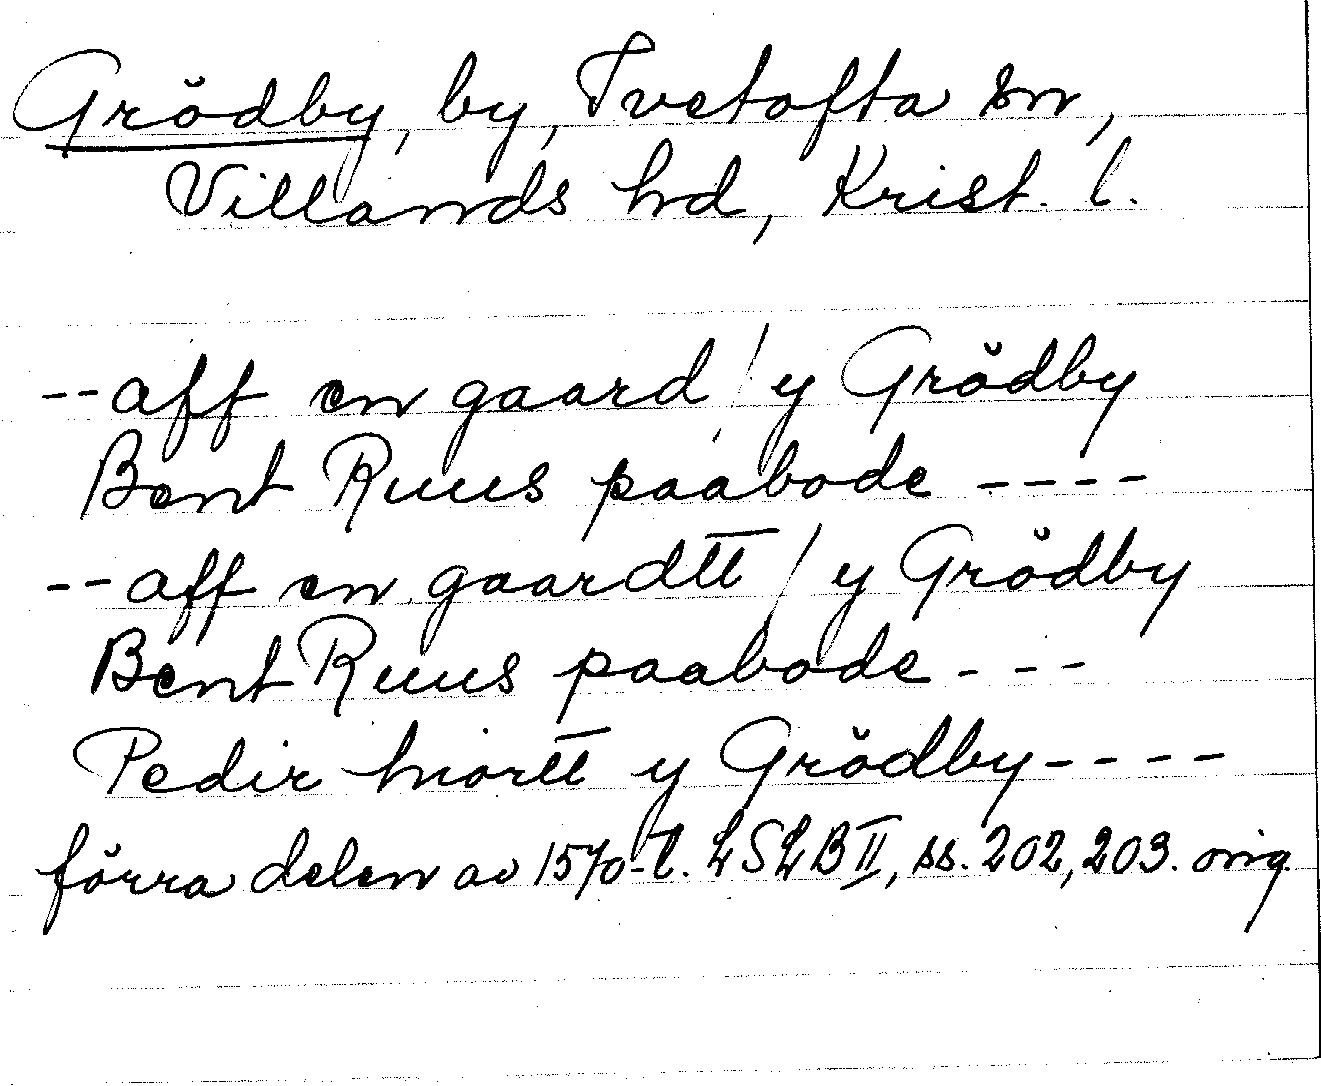 Grödby, by, Tvetofta sn,
Villands hd, Krist. l.
--aff en gaard / y Grödby
Bent Ruus paabode ----
--aff en gaardtt / y Grödby
Bent Ruus paabode ---
Pedir hiortt y Grödby ----
förra delen av 1570-t. LSLB II, ss. 202, 203. orig.